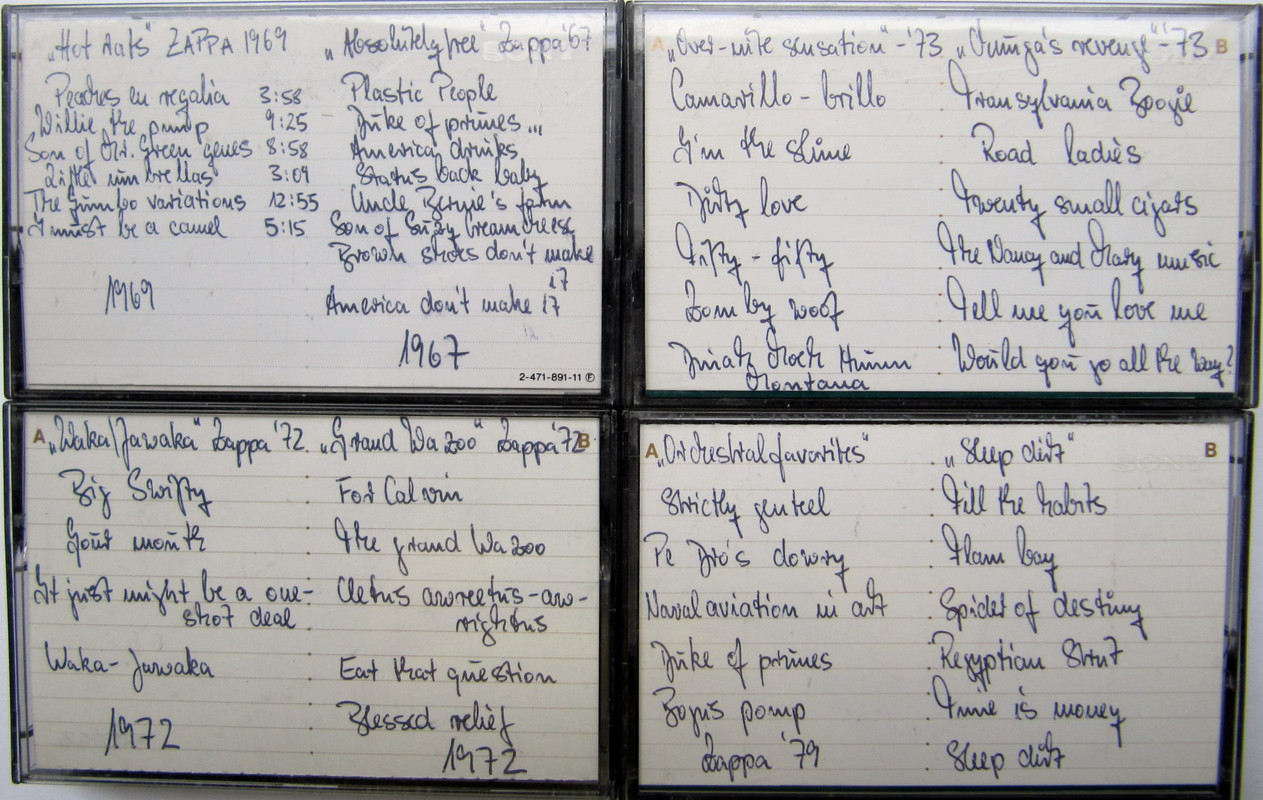 „Hot Rats" ZAPPA 1969
Peaches en regalia 3:58
Willie the pimp 9:25
Son of Mr. Green genes 8:58
Little umbrellas 3:09
The Gumbo variations 12:55
I must be a camel 5:15
1969
„Absolutely free" Zappa '67
Plastic People
Duke of prunes ...
America drinks
Status back baby
Uncle Bernie's farm
Son of Suzy Creamcheese
Brown shoes don't make
it
America don't make it
1967
2-471-891-11 Ⓕ
A „Over-nite sensation" - '73
Camarillo - brillo
I'm the slime
Dirty love
Fifty - fifty
Zomby woof
Dinah Moeh Humm
Montana
„Chunga's revenge" - '73 B
Transylvania Boogie
Road ladies
Twenty small cigars
The Nancy and Mary music
Tell me you love me
Would you go all the way?
A „Waka/Jawaka" Zappa '72
Big Swifty
Your mouth
It just might be a one-
shot deal
Waka-Jawaka
1972
„Grand Wazoo" Zappa '72 B
For Calvin
The grand Wazoo
Cletus awreetus-aw-
rightus
Eat that question
Blessed relief
1972
A „Orchestral favorites"
Strictly genteel
Pedro's dowry
Naval aviation in art
Duke of prunes
Bogus pomp
Zappa '79
„Sleep dirt" B
Fill the habits
Flam bay
Spider of destiny
Regyptian Strut
Time is money
Sleep dirt